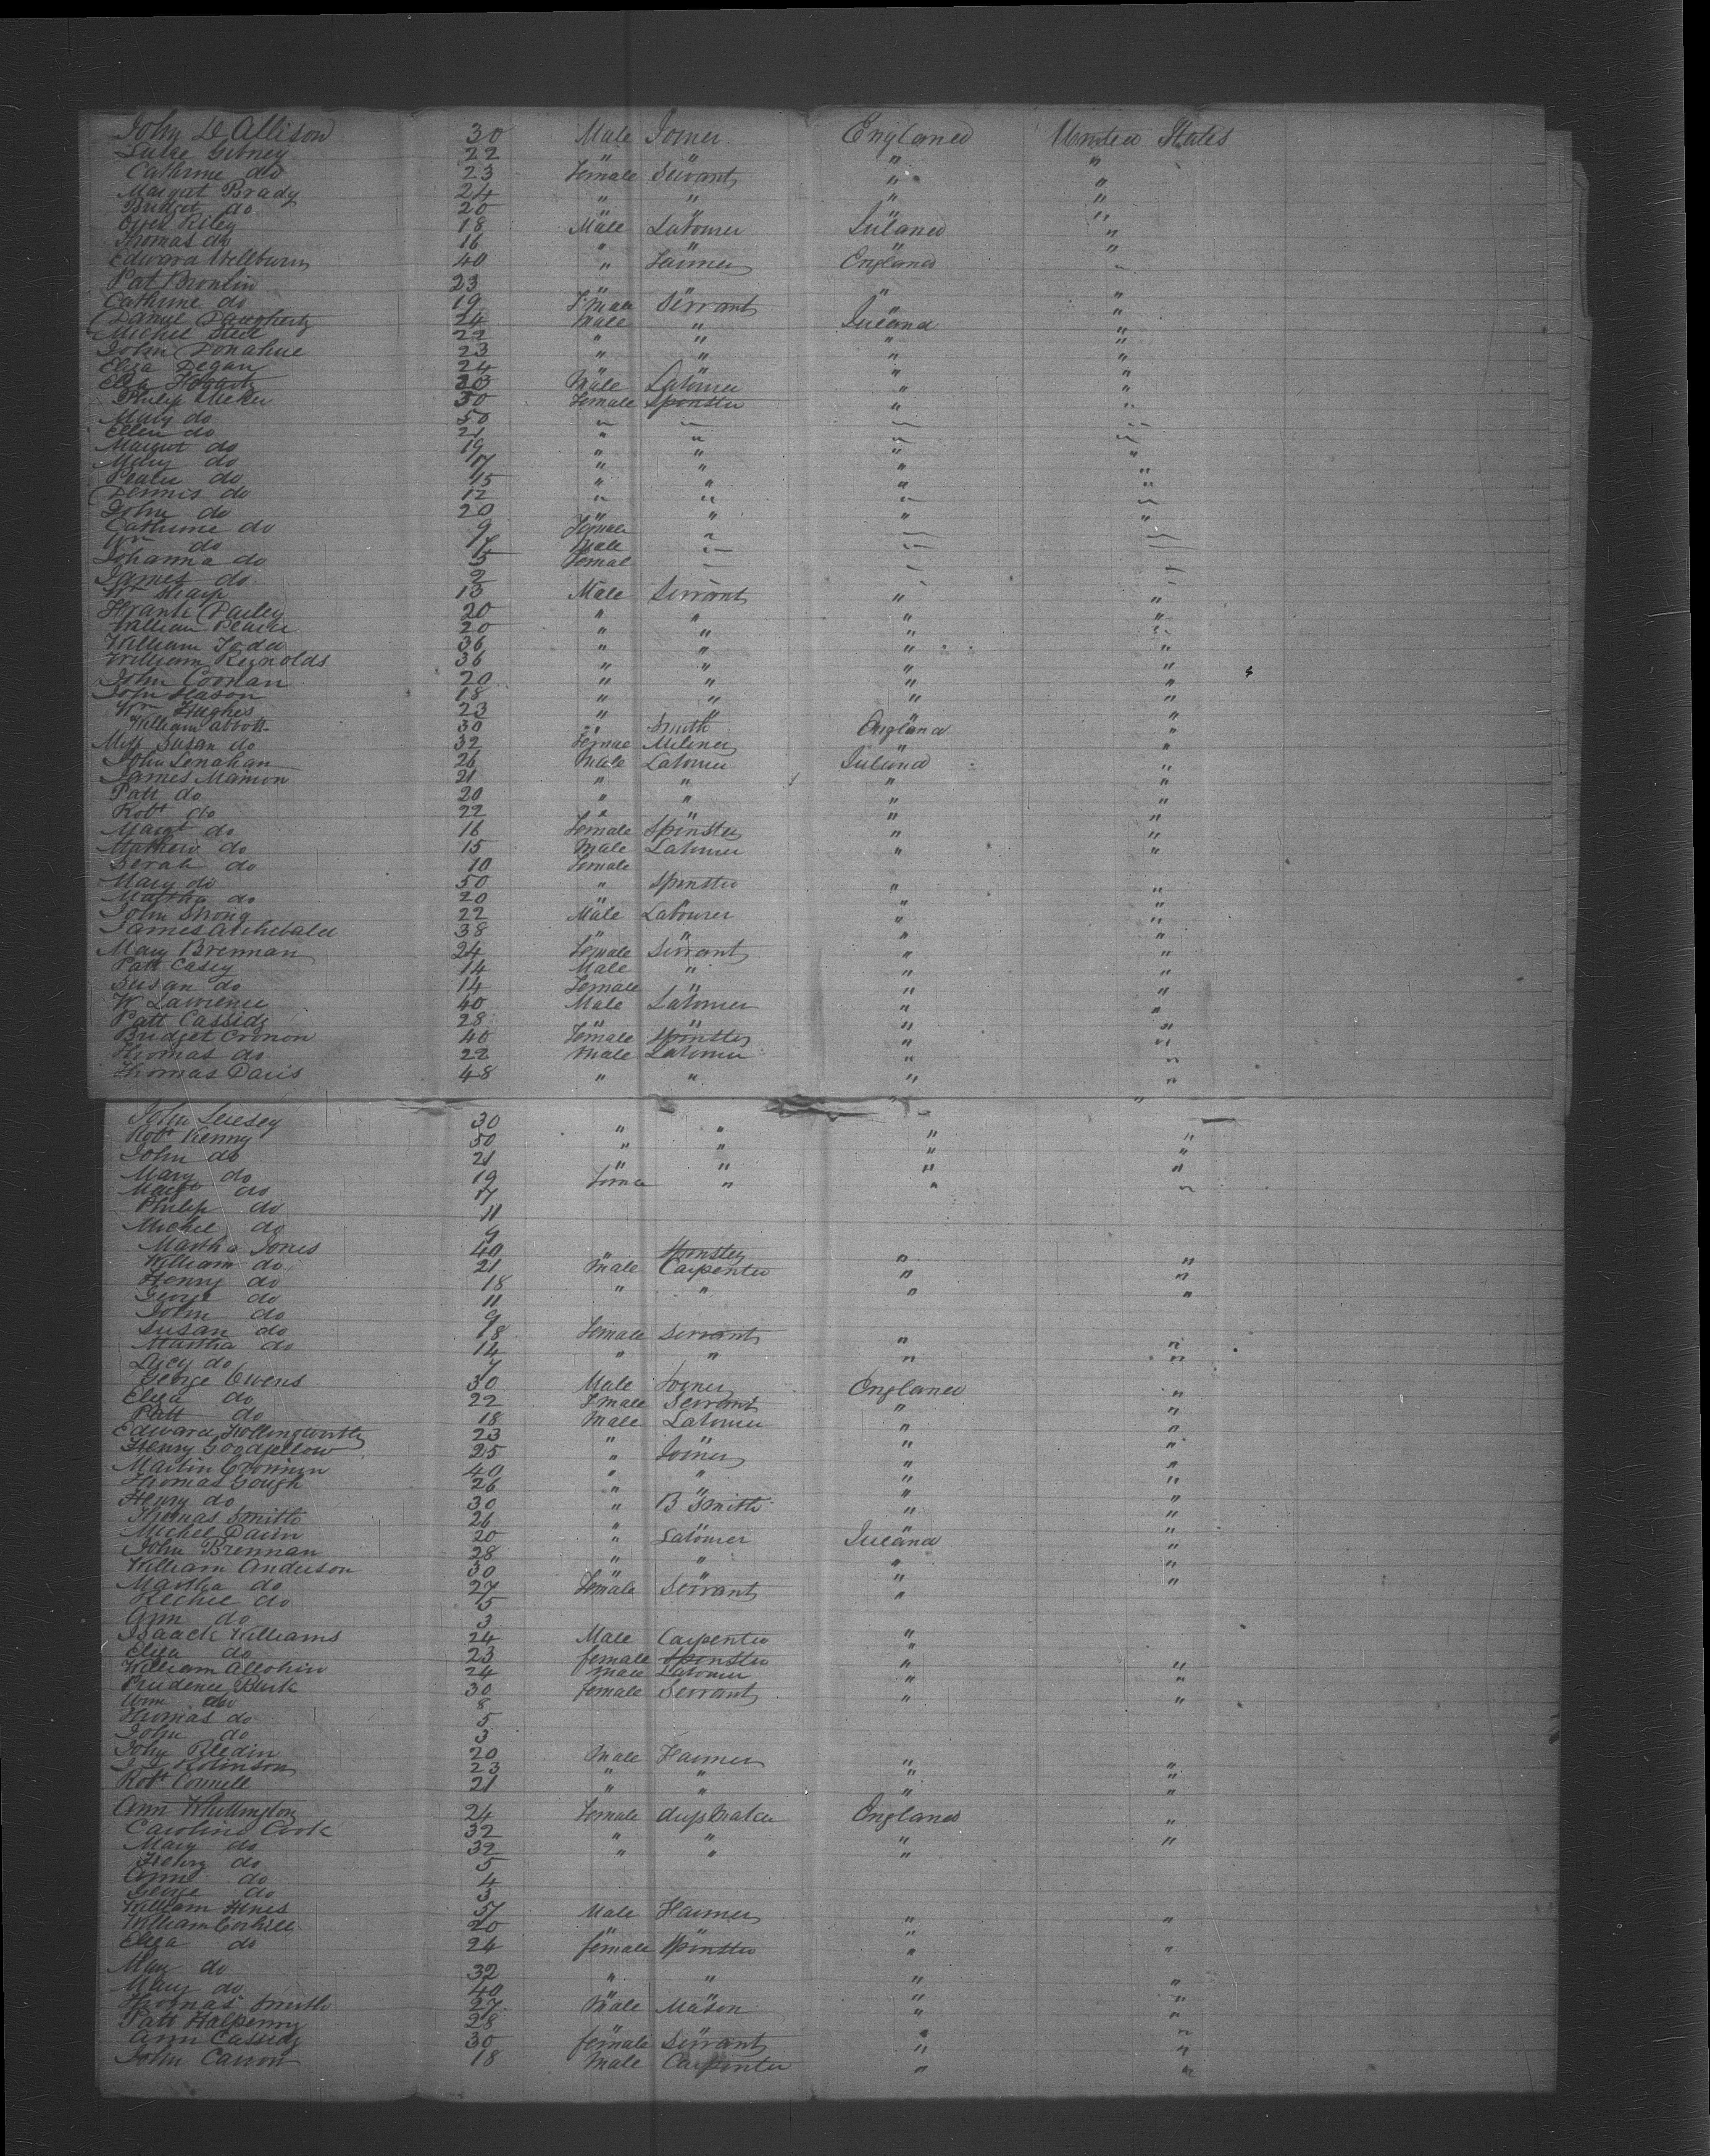 John D Allison 30 Male Joiner England United States
Luke Gibney 22 " " " "
Catherine do 23 Female Servant " "
Margret Brady 24 " " " "
Bridget do 20 " " " "
Owen Riley 18 Male Labourer Ireland "
Thomas do 16 " " " "
Edward Wellburn 40 " Farmer England "
Pat 23 " " " "
Catherine do 19 Female Servant " "
Daniel Daugherty 24 Male " Ireland "
Michel Steel 22 " " " "
John Donahue 23 " " " "
Eliza Degan 24 " " " "
Eliza Hogart 23 Male Labourer " "
Philip Meker 50 Female Spinster " "
Mary do 50 " " " "
Ellen do 21 " " " "
Margret do 19 " " " "
Mary do 17 " " " "
Peater do 15 " " " "
Dennis do 12 " " " "
John do 20 " " " "
Catherine do 9 Female " " "
Wm do 7 Male " " "
Johanna do 5 Female " " "
James do 2 " " "
Wm Sharp 13 Male Servant " "
Frank Pailey 20 " " " "
William 20 " " " "
William Todd 36 " " " "
William Reynolds 36 " " " "
John Coonan 20 " " " "
John Mason 18 " " " "
Wm Hughes 23 " " " "
William abbott 30 " Smith England "
Miss Susan do 32 Female Miliner " "
John Lenahan 26 Male Labourer Ireland "
James Mannon 21 " " " "
Patt do 20 " " " "
Robt do 22 " " " "
Margt do 16 Female Spinster " "
Mathew do 15 Male Labourer " "
Serah do 10 Female
Mary do 50 " Spinster " "
Martha do 20 " " " "
John Strong 22 Male Labourer " "
James Archebald 38 " " " "
Mary Brennan 24 Female Servant " "
Patt Casey 14 Male " " "
Susan do 14 Female " " "
W Lawrence 40 Male Labourer " "
Patt Cassidy 28 " " " "
Bridget Cronon 40 Female Spinster " "
Thomas do 22 Male Labourer " "
Thomas Davis 48 " " " "
John Livesey 30 " " " "
Robt Kenny 50 " " " "
John do 21 " " " "
Mary do 19 Female " " "
Margt do 17
Philip do 11
Michel do 9
Martha Jones 40 Spinster " "
William do 21 Male Carpenter " "
Henry do 18 " " " "
George do 11
John do 9
Susan do 18 Female Servant " "
Martha do 14 " " " "
Lucy do 7
George Owens 30 Male Joiner England "
Eliza do 22 Female Servant " "
Patt do 18 Male Labourer " "
Edward Hollingworth 23 " " " "
Henry Goodfellow 25 " Joiner " "
Martin Cronnin 40 " " " "
Thomas Gough 26 " " " "
Henry do 30 " B Smith " "
Thomas Smith 26 " " " "
Michel Dann 20 " Labourer Ireland "
John Brennan 28 " " " "
William Anderson 30 " " " "
Martha do 27 Female Servant "
do 5
Ann do 3
Isaack Williams 24 Male Carpenter "
Eliza do 23 female Spinster " "
William 24 male Labourer " "
Prudence Burk 30 female Servant " "
Ann do 8
Thomas do 5
John do 3
John Reedin 20 Male Farmer " "
Robinson 23 " " " "
Robt Connell 21 " " " "
Ann Whittington 24 Female dressmaker England "
Caroline Cook 32 " " " "
Mary do 32 " " "
Henry do 5
Anne do 4
George do 3
William Hines 57 Male Farmer " "
William 20 " " "
Eliza do 24 female Spinster " "
Mary do 32 " " " "
Mary do 40 " " " "
Thomas Smith 27 Male Mason " "
Patt Halpenny 28 " " " "
Ann Cassidy 30 female Servant " "
John Carron 18 Male Carpenter " "